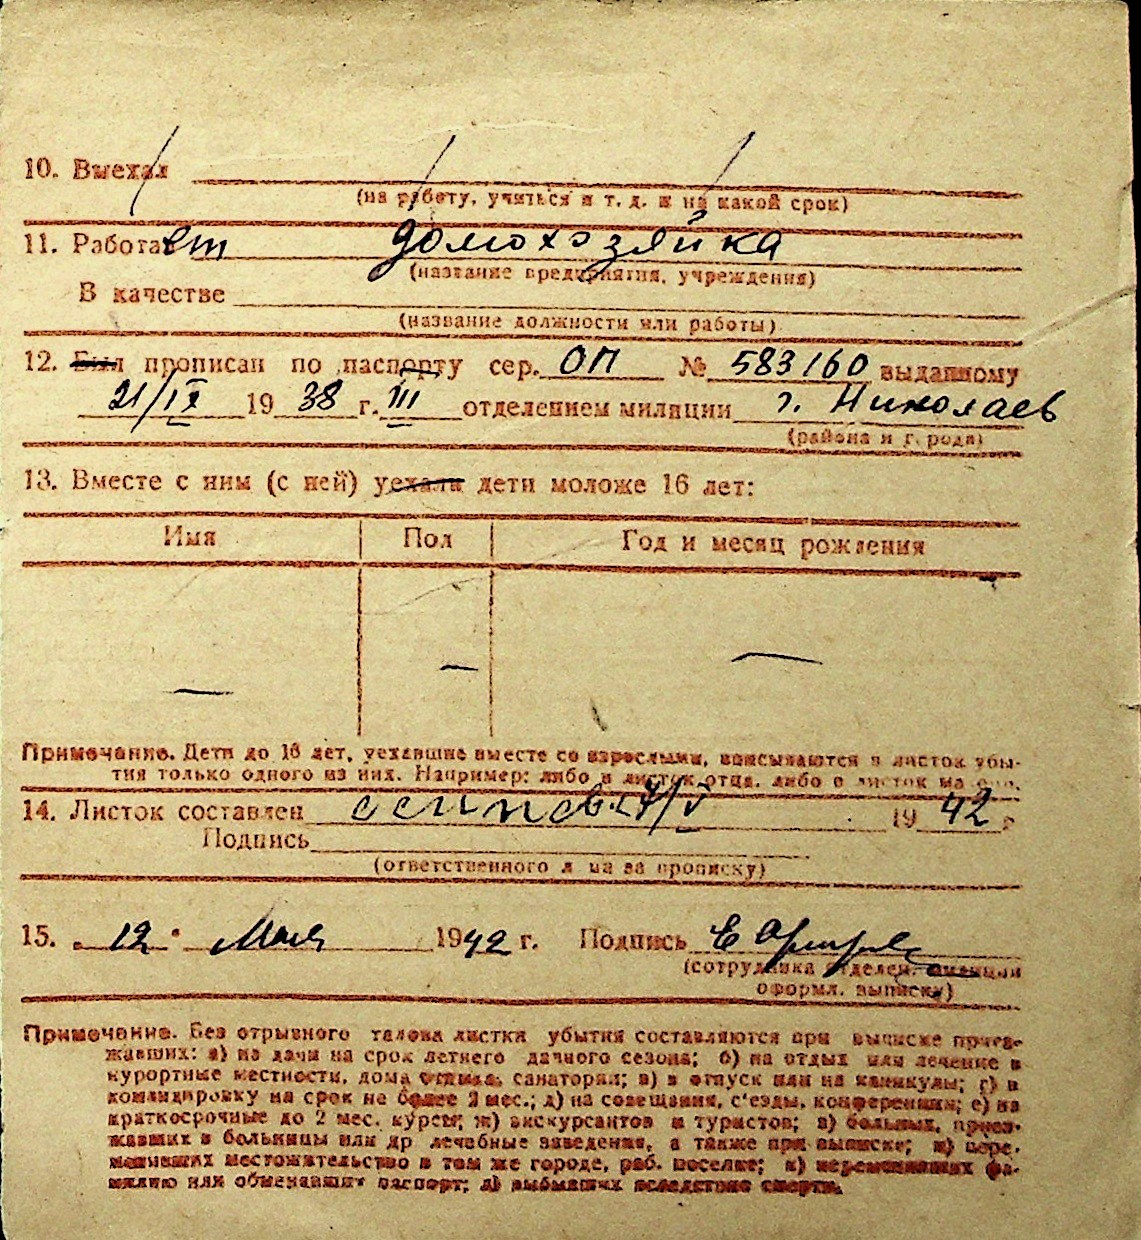 10. Выехал
(на работу, учиться и т. д. и на какой срок)
11. Работает домохозяйка
(название предприятия, учреждения)
В качестве
(название должности или работы)
12. Был прописан по паспорту сер. ОП № 583160 выданному
21/IX 1938 г. III отделением милиции г. Николаев
(района и города)
13. Вместе с ним (с ней) уехали дети моложе 16 лет:
Имя Пол Год и месяц рождения
— — —
Примечание. Дети до 16 лет, уехавшие вместе со взрослыми, вписываются в листок убы-
тия только одного из них. Например: либо в листок отца, либо в листок
14. Листок составлен 7/V 1942 г
Подпись
(ответственного лица за прописку)
15. „12" Мая 1942 г. Подпись Е
(сотрудника отделен. милиции
оформл. выписку)
Примечание. Без отрывного талона листки убытия составляются при выписке приез-
жавших: а) на дачи на срок летнего дачного сезона; б) на отдых или лечение в
курортные местности, дома отдыха, санатории; в) в отпуск или на каникулы; г) в
командировку на срок не более 2 мес.; д) на совещания, с'езды, конференции; е) на
краткосрочные до 2 мес. курсы; ж) экскурсантов и туристов; з) больных, приез-
жавших в больницы или др лечебные заведения, а также при выписке; и) пере-
менивших местожительство в том же городе, раб. поселке; к) переменивших фа-
милию или обменявших паспорт; л) выбывших вследствие смерти.